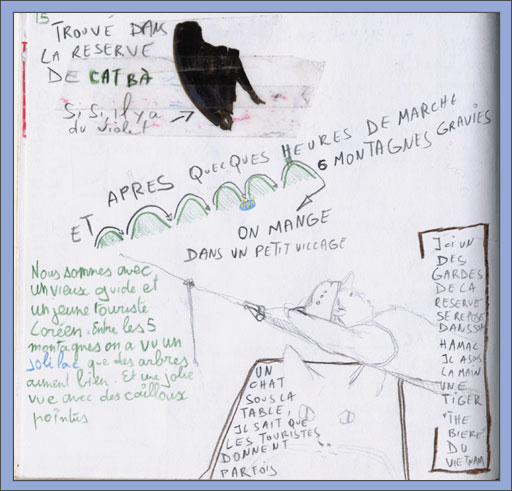 15
TROUVÉ DANS
LA RESERVE
DE CAT BÀ
Si, si, il y a
du violet
ET APRES QUELQUES HEURES DE MARCHE
6 MONTAGNES GRAVIES
ON MANGE
DANS UN PETIT VILLAGE
Nous sommes avec
un vieux guide et
un jeune touriste
Coréen. Entre les 5
montagnes on a vu un
joli lac que des arbres
aiment bien. Et une jolie
vue avec des cailloux
pointus
UN
CHAT
SOUS LA
TABLE,
IL SAIT QUE
LES TOURISTES
DONNENT
PARFOIS
Ici UN
DES
GARDES
DE LA
RESERVE
SE REPOSE
DANS SON
HAMAC
IL A SOUS
LA MAIN
UNE
TIGER
"THE
BIERE"
DU
VIETNAM